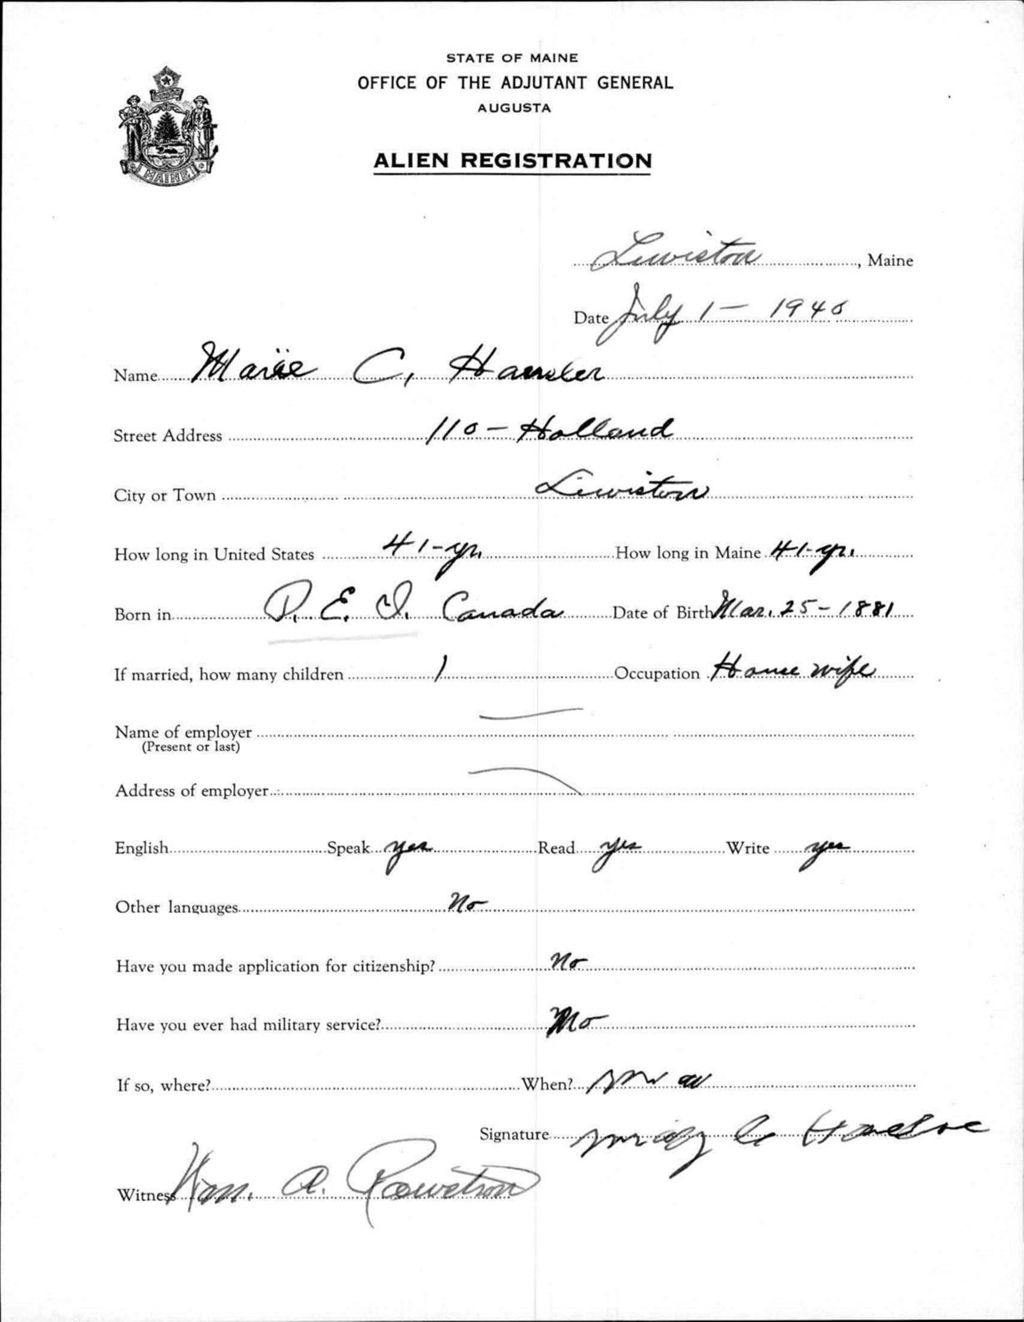 STATE OF MAINE
OFFICE OF THE ADJUTANT GENERAL
AUGUSTA
ALIEN REGISTRATION
MAINE
Lewiston, Maine
Date July 1 - 1940
Name Marie C.
Street Address 110 - Holland
City or Town Lewiston
How long in United States 41-yr. How long in Maine 41-yr.
Born in P.E.I. Canada Date of Birth Mar. 25 - 1881
If married, how many children 1 Occupation House wife
Name of employer
(Present or last)
Address of employer
English Speak yes Read yes Write yes
Other languages No
Have you made application for citizenship? No
Have you ever had military service? No
If so, where? When?
Signature C
Witness Wm. A.